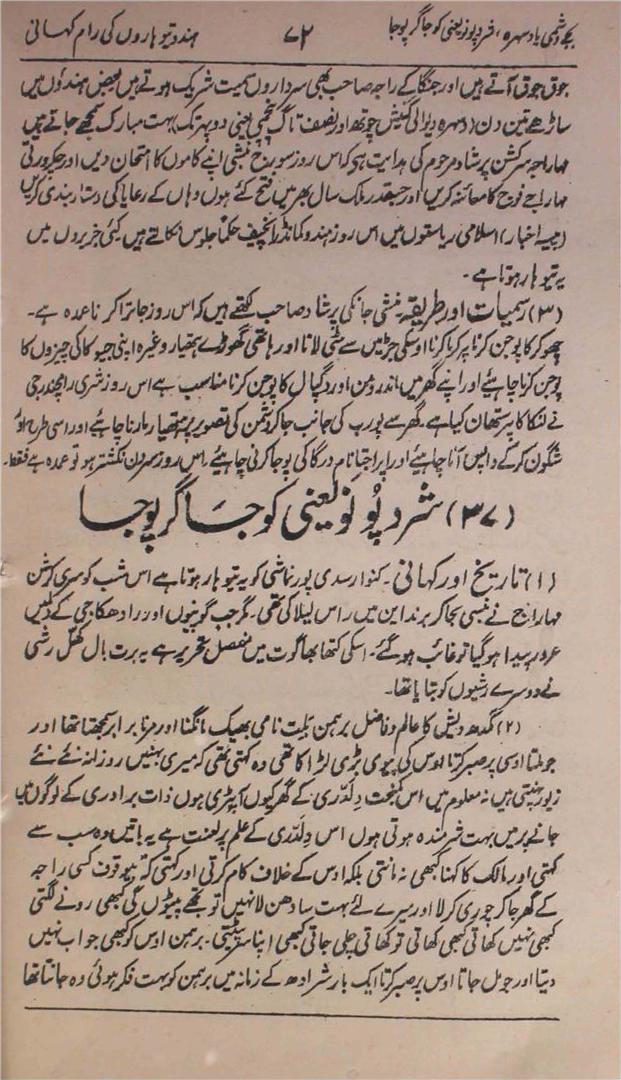 بجے دشمی یا دسہرہ، شرد پونو یعنی کوجاگر پوجا ۷۲ ہندو تیوہاروں کی رام کہانی
جوق جوق آتے ہیں اور جنگا کے راجہ صاحب بھی سرداروں سمیت شریک ہوتے ہیں بعض ہندوؤں میں
ساڑھے تین دن (دسہرہ دیوالی گنیش چوتھ اور نصف ناگ پنچمی یعنی دوپہر تک) بہت مبارک سمجھے جاتے ہیں
مہاراجہ سرکشن پرشاد مرحوم کی ہدایت ہی کہ اس روز سورج بنشی اپنے کاموں کا امتحان دیں اور چکرورتی
مہاراجے فوج کا معائنہ کریں اور جسقدر ملک سال بھر میں فتح کئے ہوں وہاں کے رعایا کی دستار بندی کریں
(پیسہ اخبار) اسلامی ریاستوں میں اس روز ہندو کمانڈر انچیف حکماً جلوس نکالتے ہیں کئی جزیروں میں
یہ تیوہار ہوتا ہے۔
(۳) رسمیات اور طریقہ۔ منشی جانکی پرشاد صاحب لکھتے ہیں کہ اس روز جاترا کرنا عمدہ ہے۔
چھوکر کا پوجن کرنا پرکرما کرنا اوسکی جڑ میں سے مٹی لانا اور ہاتھی گھوڑے ہتھیار وغیرہ اپنی جیوکا کی چیزوں کا
پوجن کرنا چاہئیے اور اپنے گھر میں اندر دمن اور دگپال کا پوجن کرنا مناسب ہے اس روز شری رامچندر جی
نے لنکا کا پرستھان کیا ہے۔ گھر سے پورب کی جانب جاکر دشمن کی تصویر پر ہتھیار مارنا چاہئیے اور اسی طرح اور
شگون کرکے واپس آنا چاہئیے اور اپراجتا نام درگا کی پوجا کرنی چاہئیے۔ اس روز سرون نکشتر ہو تو عمدہ ہے فقط۔
(۳۷) شرد پُونو یعنی کوجَاگر پوجا
(۱) تاریخ اور کہانی۔ کنوار سدی پورنماشی کو یہ تیوہار ہوتا ہے اس شب کو سری کرشن
مہاراج نے بنسی بجا کر بندرابن میں راس لیلا کی تھی۔ مگر جب گوپیوں اور رادھکا جی کے دلمیں
غرور پیدا ہو گیا تو غائب ہو گئے۔ اسکی کتھا بھاگوت میں مفصل تحریر ہے یہ برت بال کھل رشی
نے دوسرے رشیوں کو بتایا تھا۔
(۲) مگدھ دیش کا عالم و فاضل برہمن بلت نامی بھیک مانگنا اور مرنا برابر سمجھتا تھا اور
جو ملتا اوسی پر صبر کرتا اوس کی بیوی بڑی لڑاکا تھی وہ کہتی تھی کہ میری بہنیں روزانہ نئے نئے
زیور پہنتی ہیں نہ معلوم میں اس کمبخت دِلدّری کے گھر کیوں آ پڑی ہوں ذات برادری کے لوگوں میں
جانے پر میں بہت شرمندہ ہوتی ہوں اس دِلدّری کے علم پر لعنت ہے یہ باتیں وہ سب سے
کہتی اور مالک کا کہنا کبھی نہ مانتی بلکہ اوس کے خلاف کام کرتی اور کہتی کہ بیوقوف کسی راجہ
کے گھر جا کر چوری کر لا اور میرے لئے بہت سا دھن لا نہیں تو تجھے پیٹوں گی کبھی رونے لگتی
کبھی نہیں کھاتی کبھی کھاتی تو کھاتی چلی جاتی کبھی اپنا سر پیٹتی۔ برہمن اوس کو کبھی جواب نہیں
دیتا اور جو مل جاتا اوس پر صبر کرتا ایک بار شرادھ کے زمانہ میں برہمن کو بہت فکر ہوئی وہ جانتا تھا